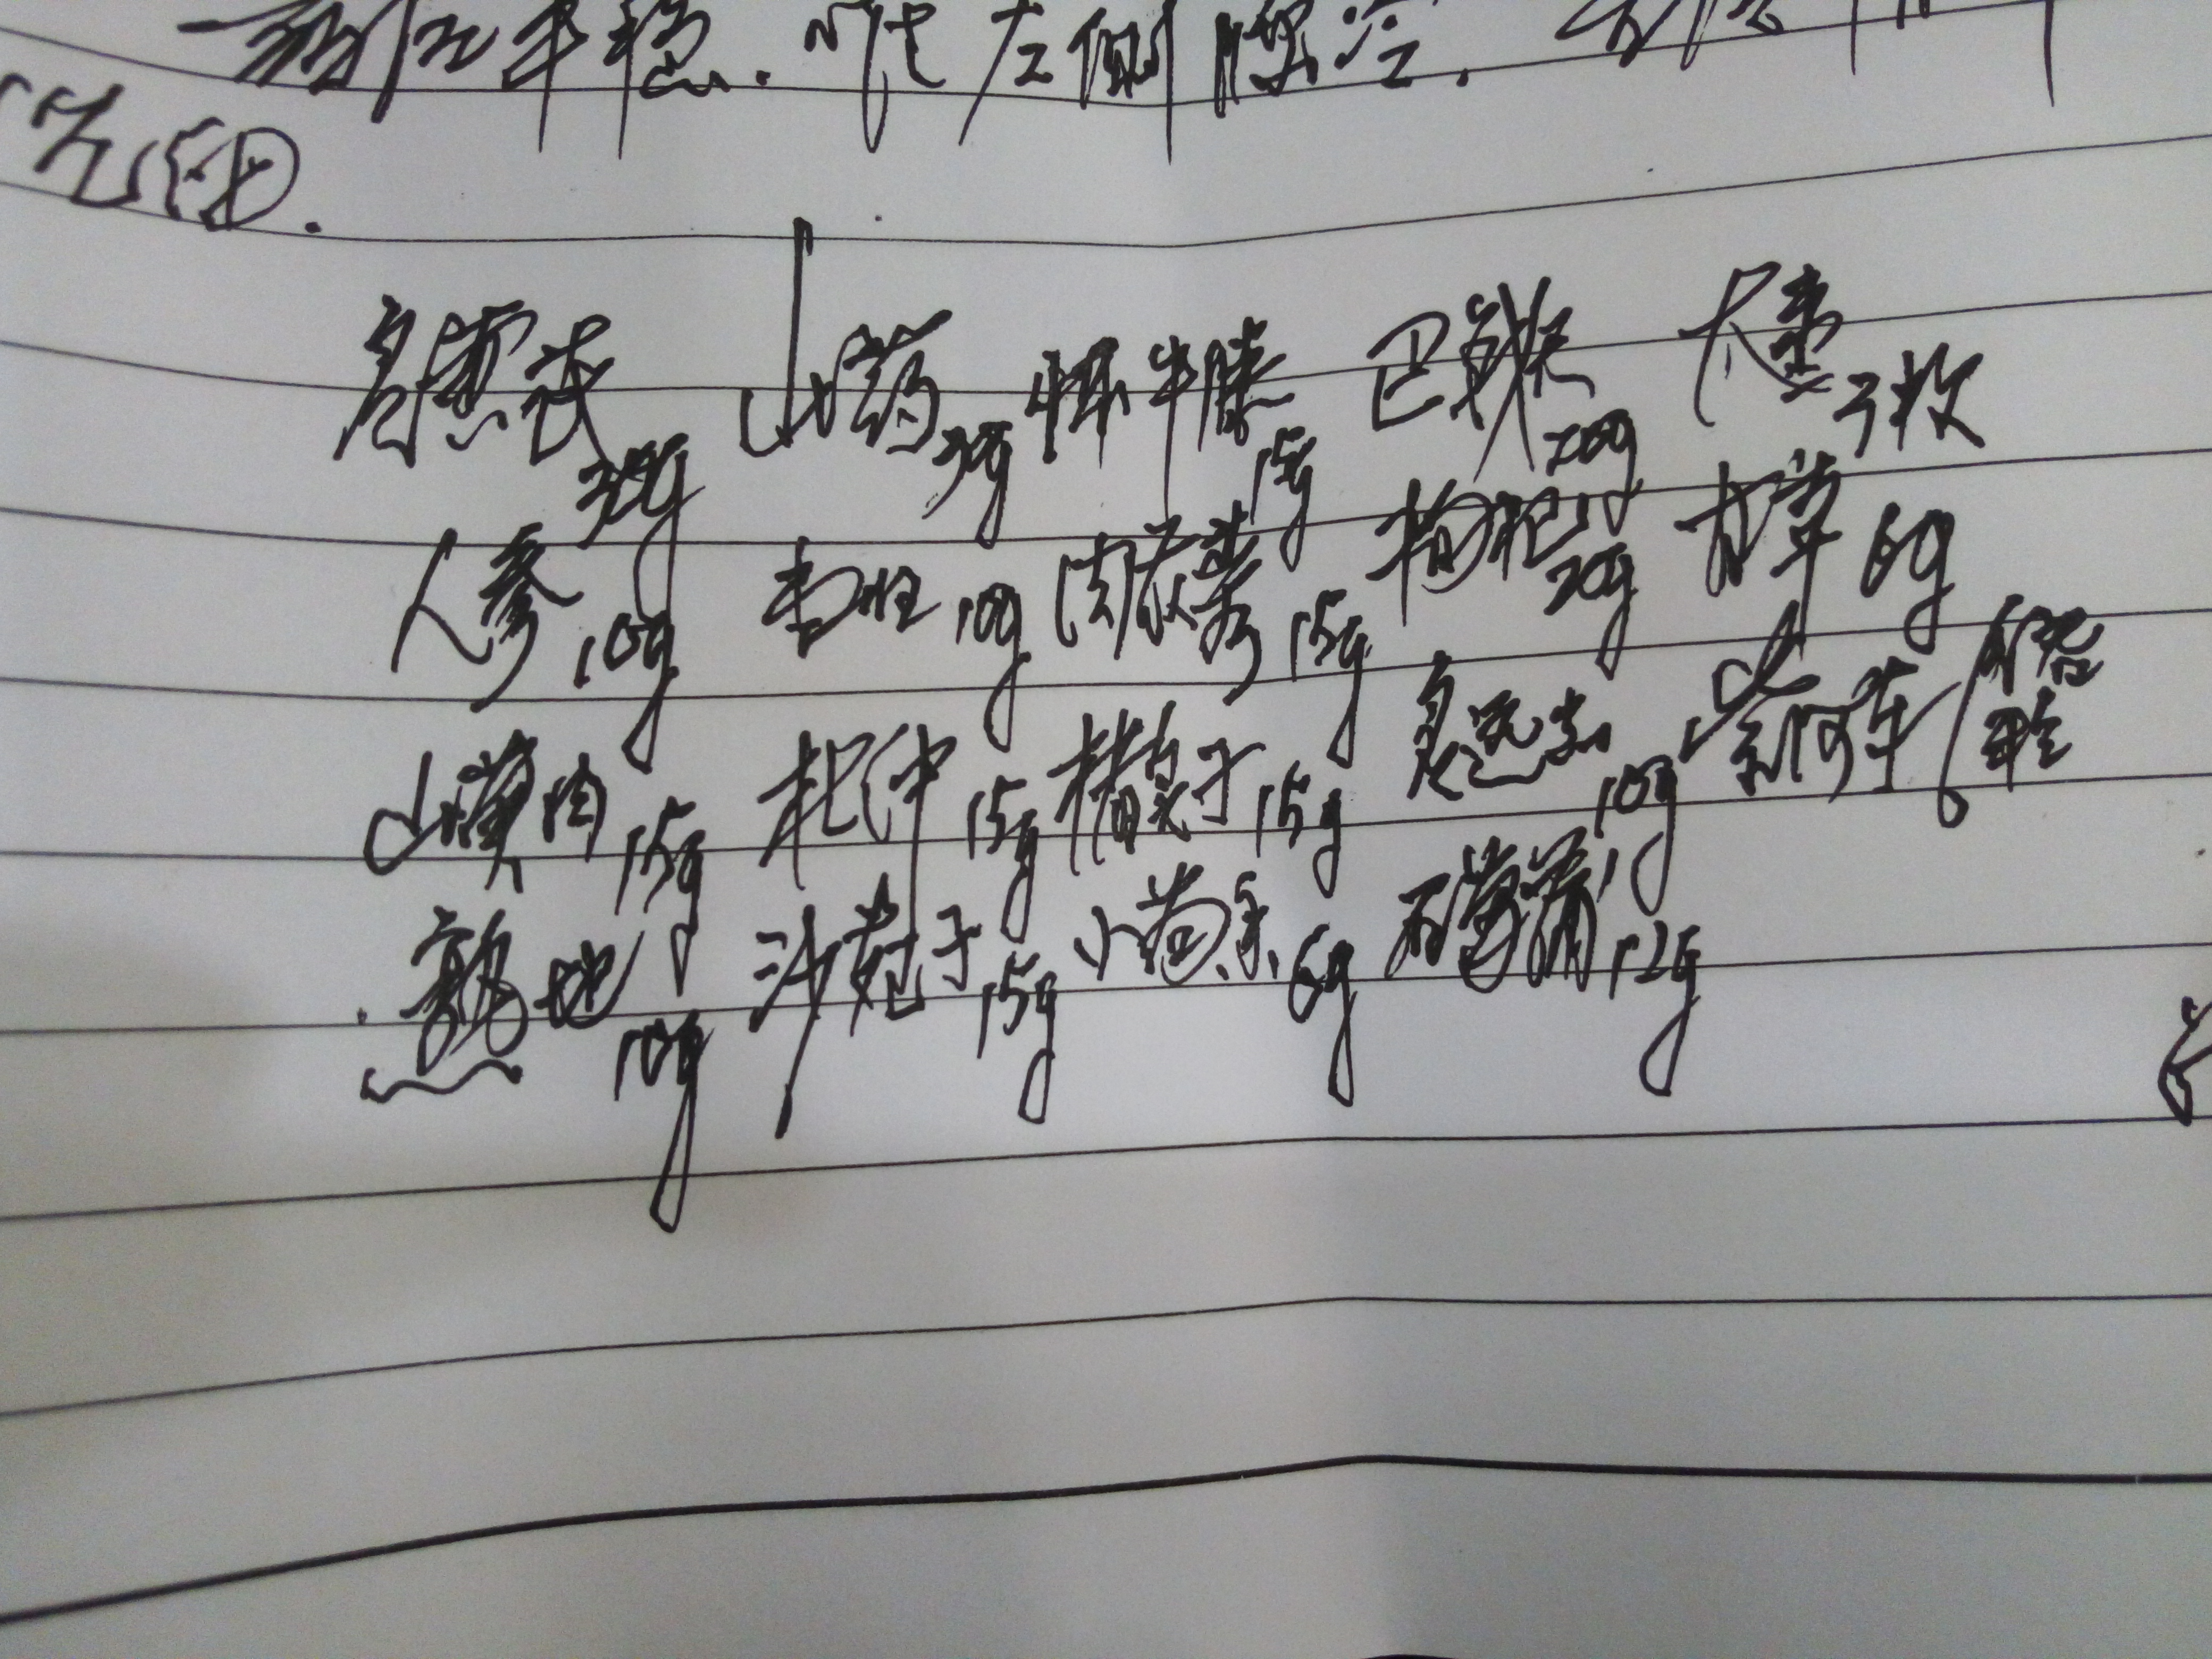 平稳. 左侧腰冷.
炙黄芪 30g 山药 30g 怀牛膝 15g 巴戟天 20g 大枣 3枚
人参 10g 枣仁 10g 肉苁蓉 15g 枸杞 20g 甘草 6g
山萸肉 15g 杜仲 15g 楮实子 15g 炙远志 10g 紫河车
熟地 10g 沙苑子 15g 小茴香 6g 石菖蒲 12g